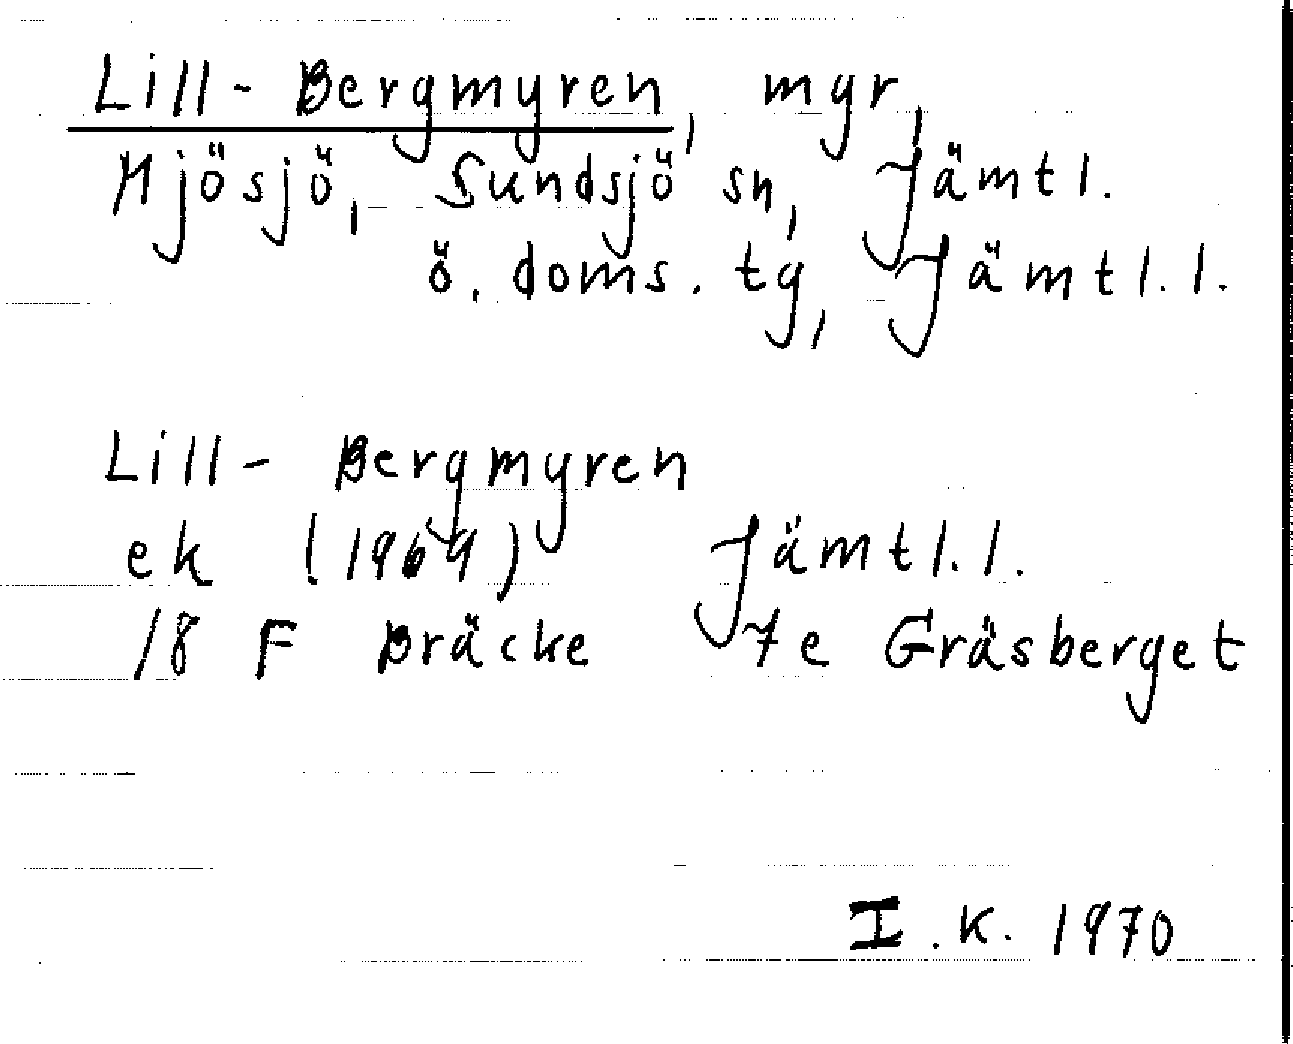 Lill-Bergmyren, mgr,
Mjösjö, Sundsjö sn, Jämtl.
ö. doms. tg, Jämtl.l.
Lill-Bergmyren
ek (1969) Jämtl.l.
18 F Bräcke 7e Gräsberget
I.K. 1970